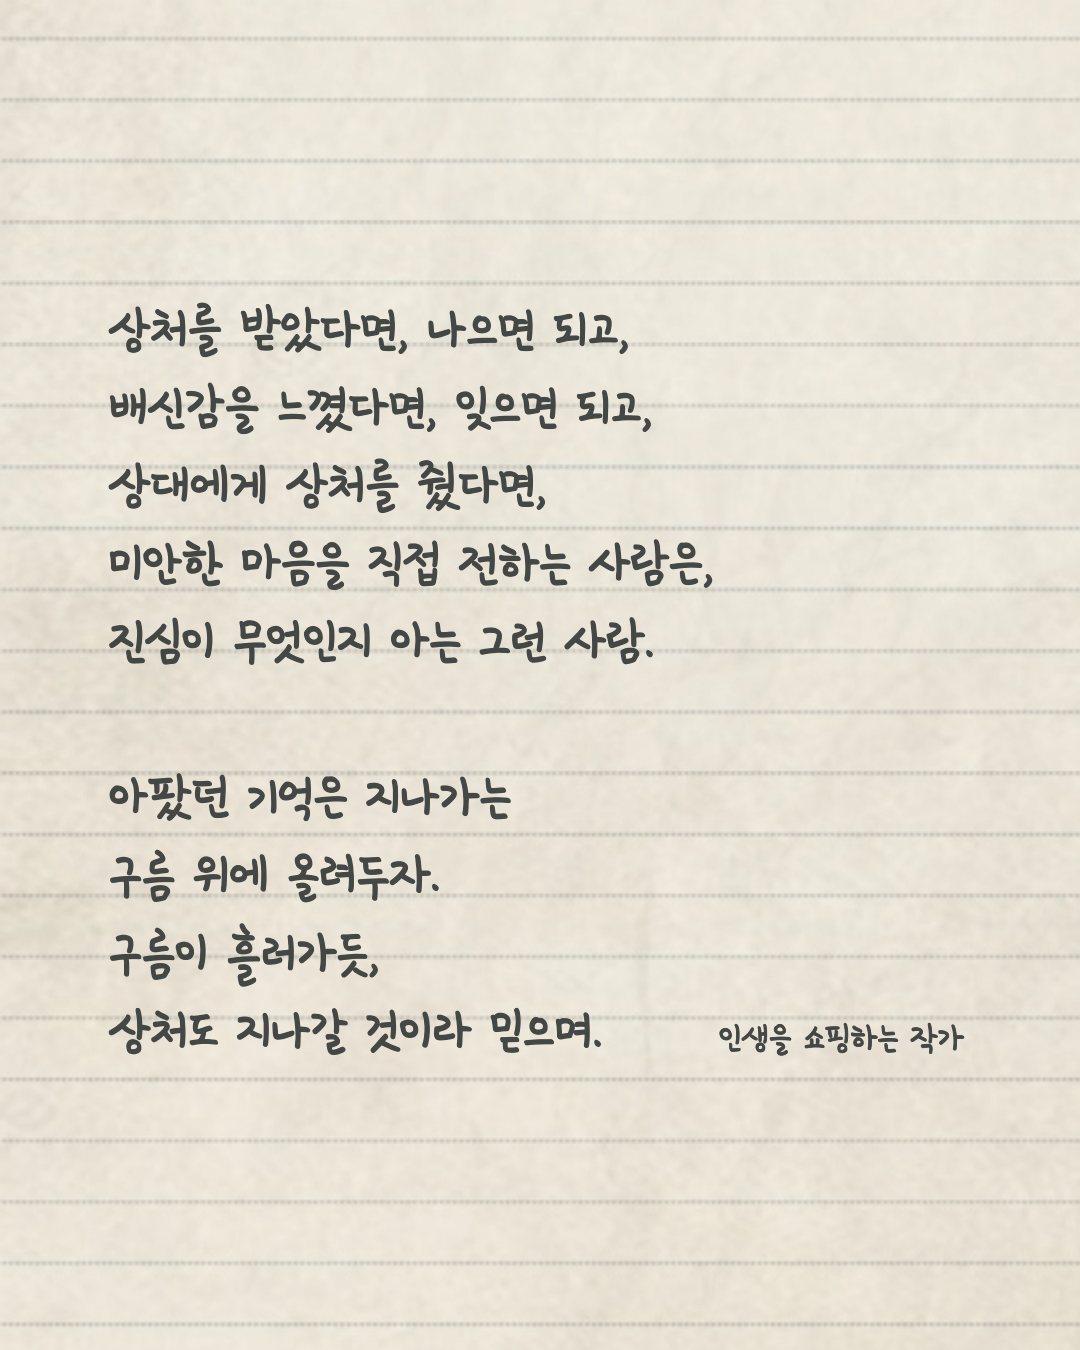 상처를 받았다면, 나으면 되고,
배신감을 느꼈다면, 잊으면 되고,
상대에게 상처를 줬다면,
미안한 마음을 직접 전하는 사람은,
진심이 무엇인지 아는 그런 사람.
아팠던 기억은 지나가는
구름 위에 올려두자.
구름이 흘러가듯,
상처도 지나갈 것이라 믿으며.
인생을 쇼핑하는 작가